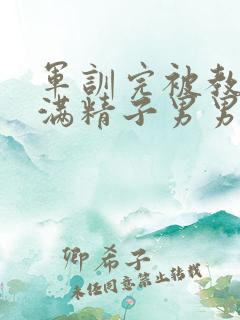 軍訓完被教
滿精子男男
卿希子
未经同意禁止转载